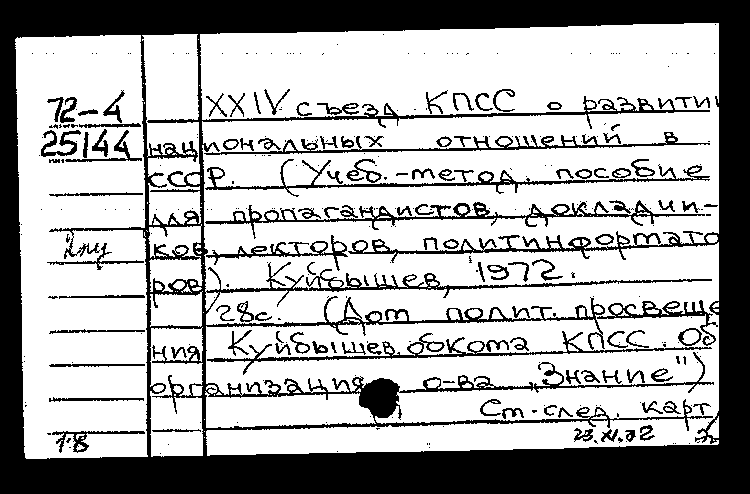 72-4 XXIV съезд КПСС о развитии
25144 национальных отношений в
СССР. (Учеб.-метод. пособие
для пропагандистов, докладчи-
ков, лекторов, политинформато
ров). Куйбышев, 1972.
28с. (Дом полит. просвеще
ния Куйбышев. обкома КПСС. Об
организация о-ва „Знание")
См. след. карт
18 23.XI.72